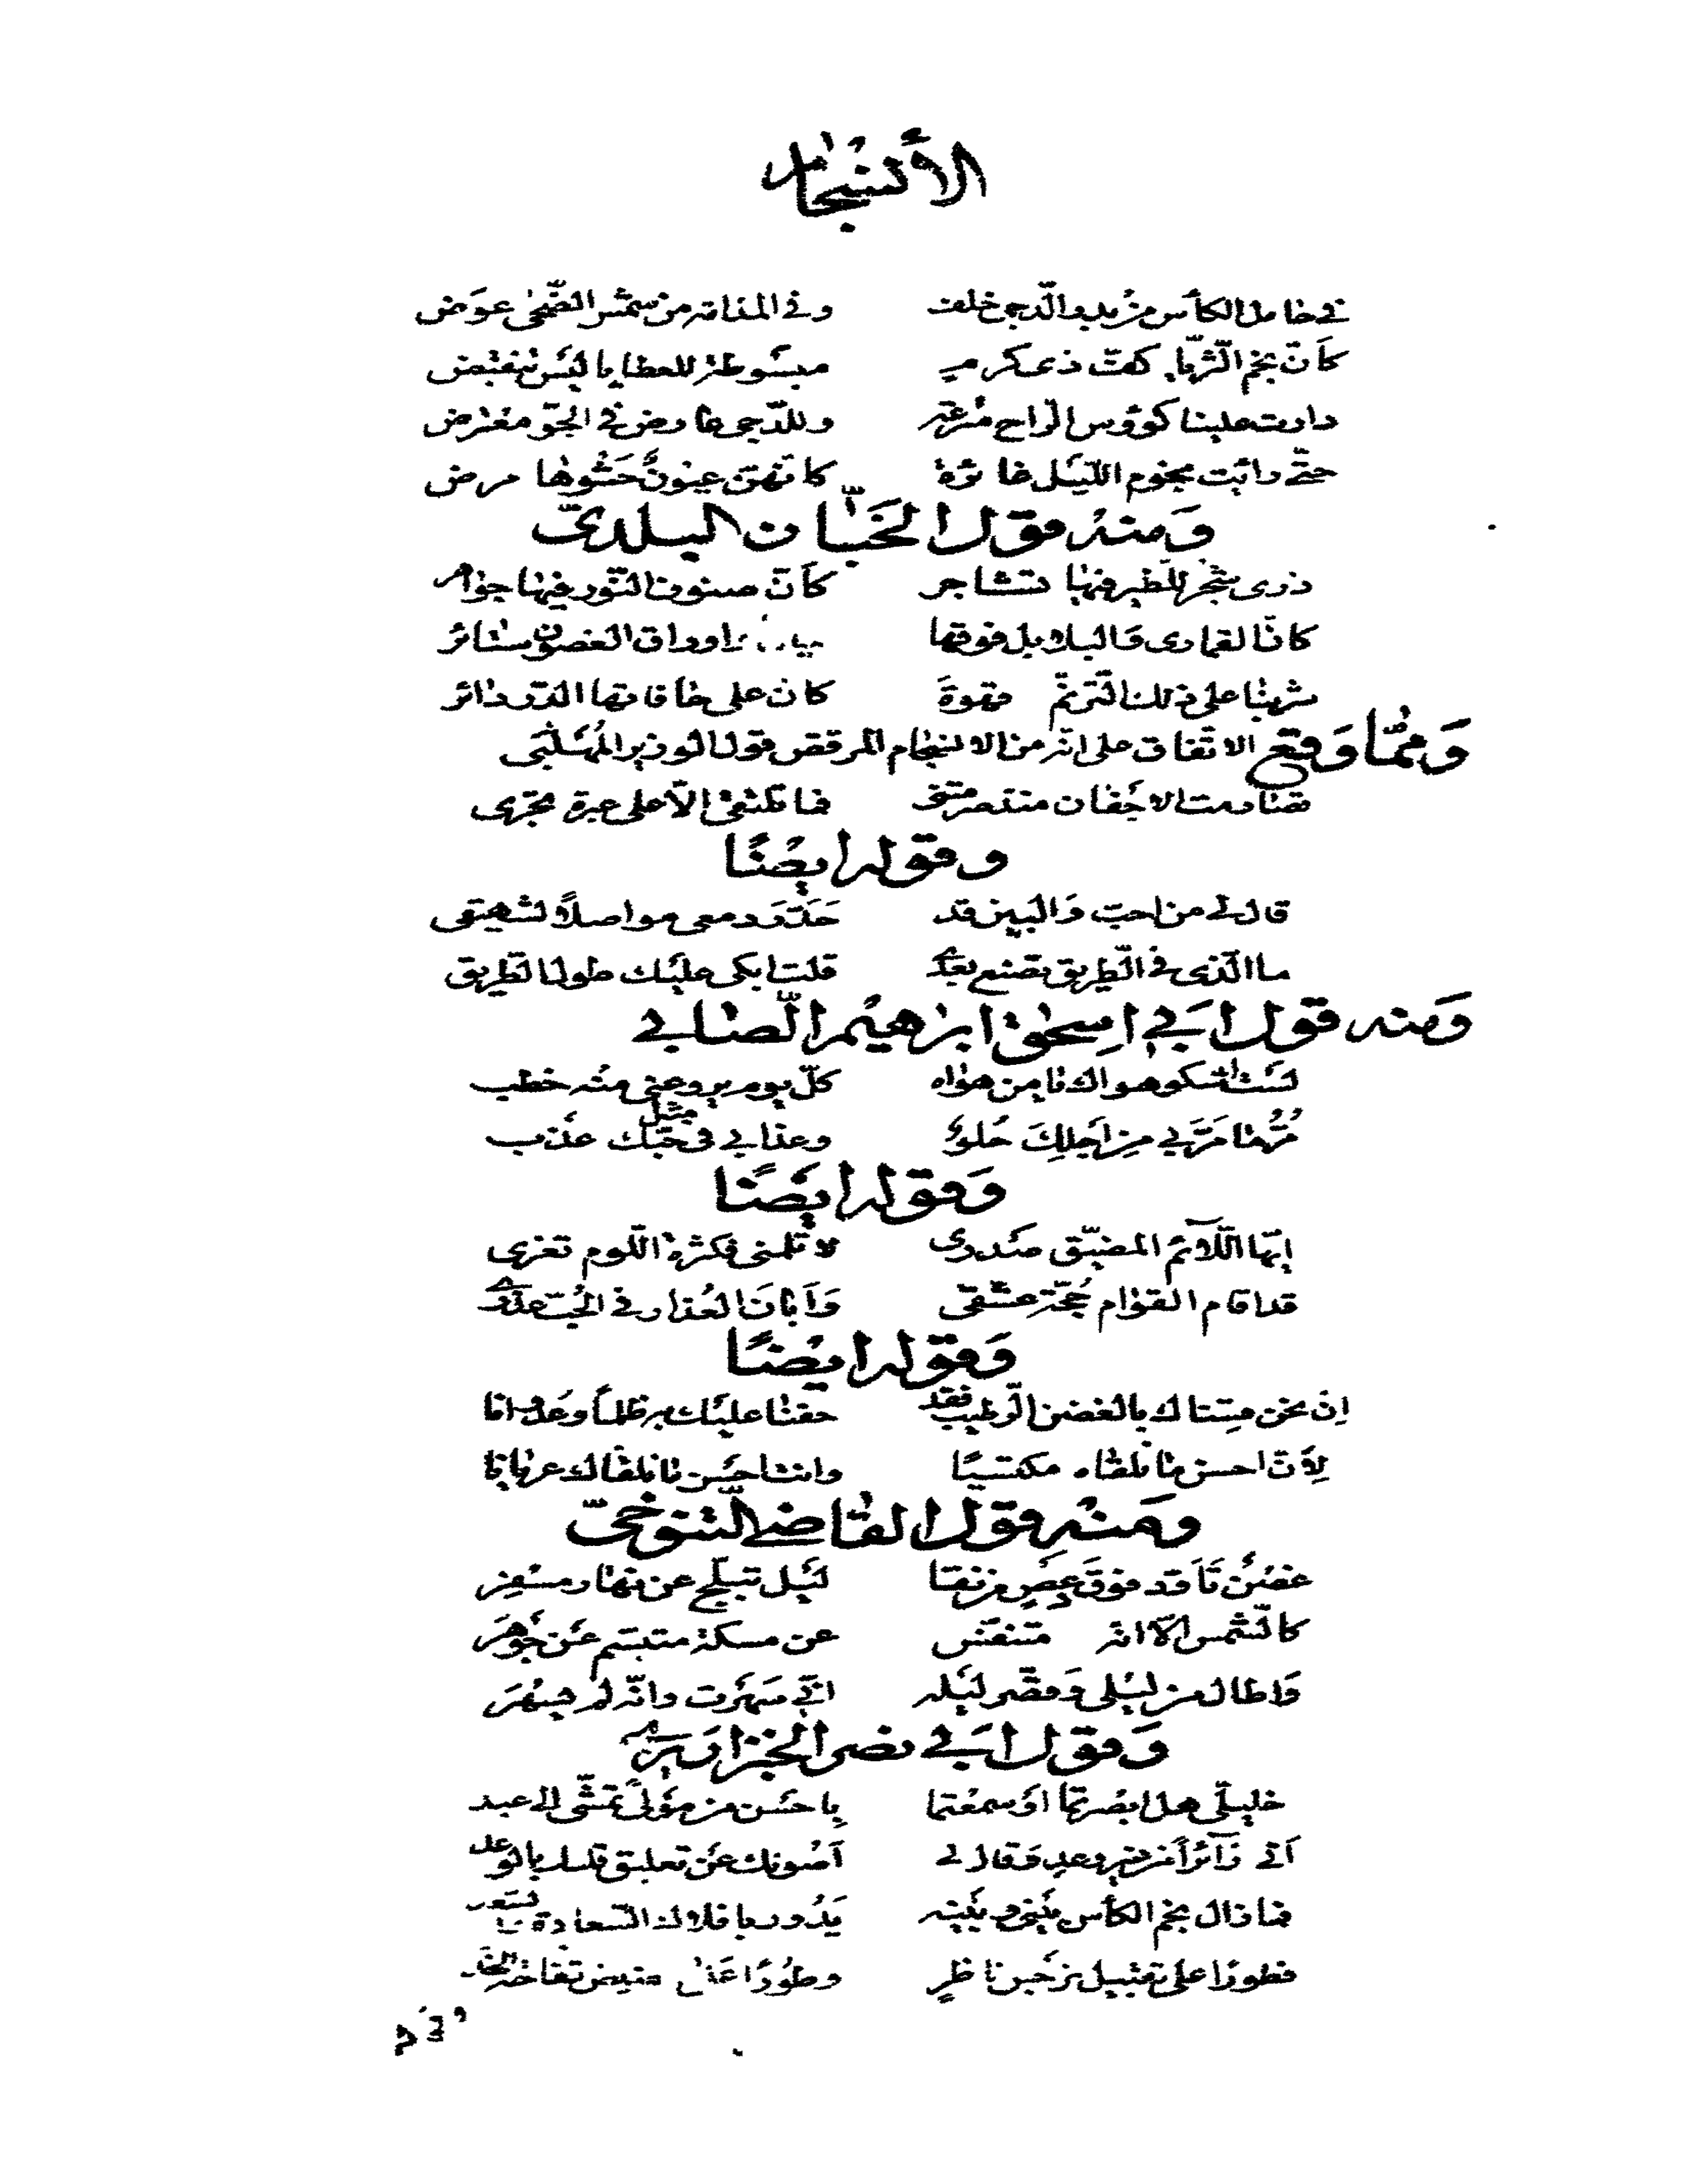 الأنسجام
في حامل الكأس من بدر الدجى خلف وفي المدامة من شمس الضّحى عوَض
كأنّ نجم الثّريّا كفّ ذى كرم مبسُوطة للعطايا ليسَ تنقبض
دارت علينا كؤوس الرّاح مترعة وللدّجى عارض في الجوّ معترض
حتّى رأيت نجوم اللّيل غائرة كانّهنّ عيونٌ حَشوها مرض
وَمنه قول الخَبّاز البلدىّ
ذرى شجر للطّير فيها تشاجر كأنّ صنوف النّور فيها جواهر
كانّ القمارى وَالبلابل فوقها اوراق الغصون ستائر
شربنا على ذلك التّرنّم قهوةً كان على حافاتها الدّر دائر
وَممّا وَقع الاتّفاق على انّه من الانسجام المرقص قول الوزير المُهَلّبى
تصارمت الاجفان منذ صرمتنى فما تلتقى الّا على عبرة تجرى
وقوله ايضًا
قال لى من احبّ وَالبين قد جَدّ وَدمعى مواصلاً لشهيقى
ما الّذى في الطّريق تصنع بعدى قلت ابكى عليك طول الطّريق
وَمنه قول ابَي اِسحٰق ابرٰهيم الصّابي
لستُ اشكو هواك يا من هواه كلّ يوم يروعنى منه خطب
مُرُّ ما مَرَّ بي مِن اَجلِكَ حُلوٌ وعذابي فى مثل حبّك عَذب
وَقوله ايضًا
ايّها اللّائم المضيّق صدرى لا تلمنى فكثرة اللّوم تغرى
قد اقام القوام حُجّة عشقى وَاَبانَ العُذار في الحُبّ عذرى
وَقوله ايضًا
اِن نحن قسناك بالغصن الرّطيب فقد حفنا عليك به ظلماً وعدوانا
لِأنّ احسن ما نلقاه مكتسيًا وانت احسن ما نلقاك عريانا
وَمنهِ قول القاضي التّنوخىّ
غصنٌ تَأَوّد فوق دِعصٍ من نقا ليل تبلّج عن نهار مسفر
كالشّمس الّا انّه متنفّس عن مسكة متبسّم عَن جَوهَر
وَاطال من ليلى وَقصّر ليله انّي سَهرت وانّه لم يسهَر
وَقول ابَي نصر الخبزارزى
خليلىّ هل ابصرتما اوْ سمعتما باحسن من مَولىً تمشّى الى عبد
اَتى زآئراً من غير وعدٍ وَقال لى اَصُونك عَن تعليق قلبك بالوعد
فما زال نجم الكأس بيني وَبينه يَدُور بافلاك السّعادة
فطورًا على تقبيل نرجس ناظرٍ وطورًا تفّاحة الخدّ